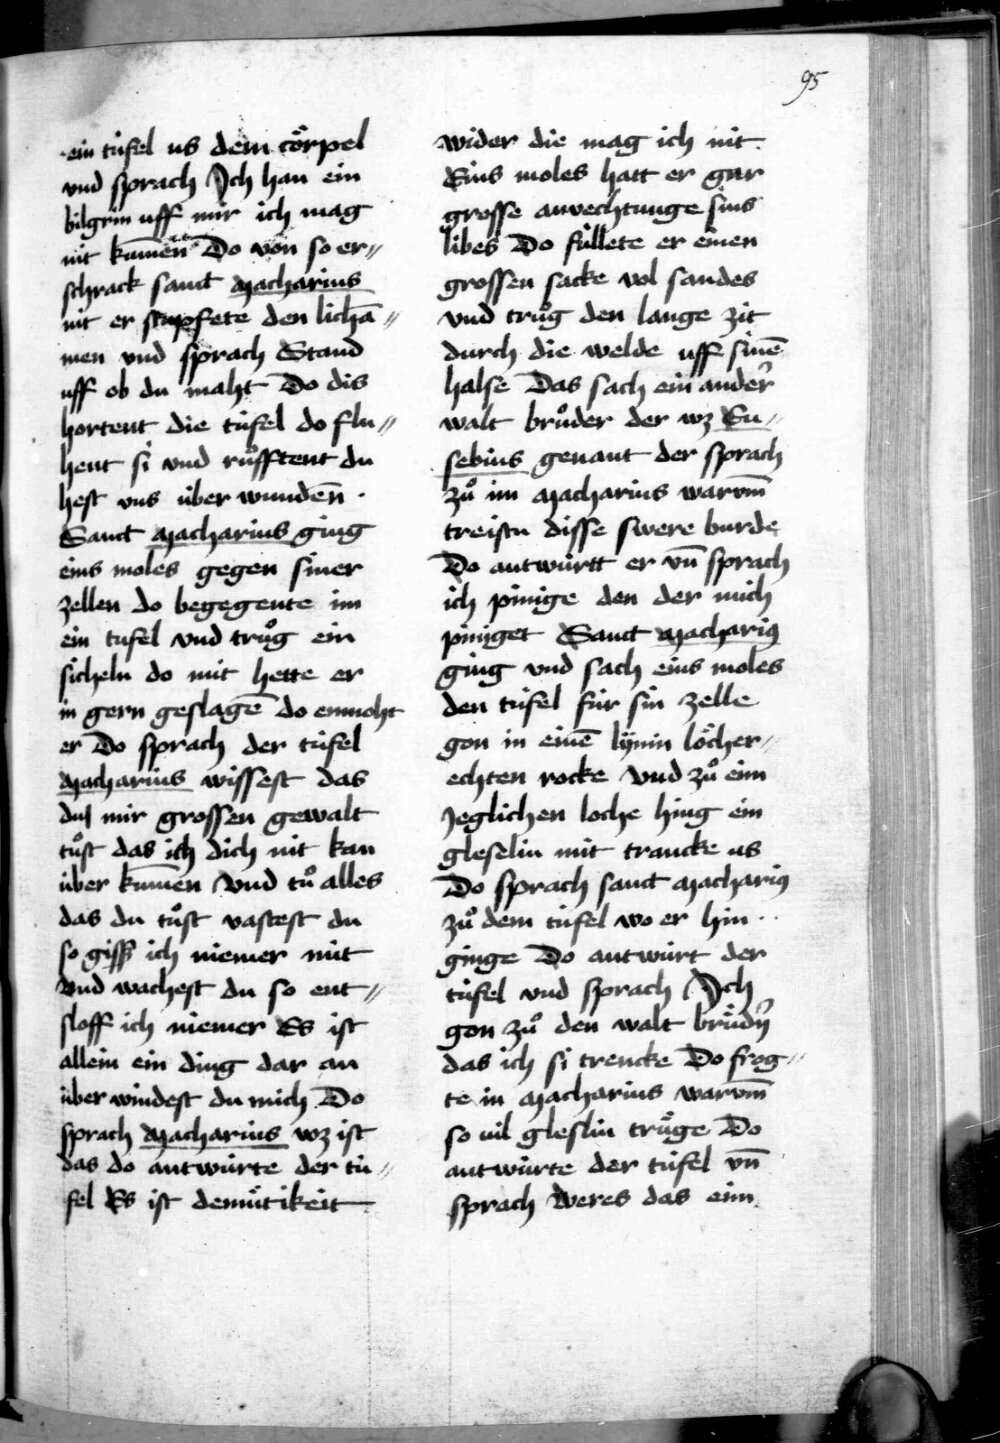 95
ein tüfel us dem cörpel
vnd sprach Ich han ein
bilgrin uff mir ich mag
nit kum̄en Do von so er〃
schrack sanct Macharius
nit er stupfete den lichā〃
men vnd sprach Stand
uff ob du maht Do dis
hortent die tüfel do flu〃
hent si vnd růfftent du
hest vns über wunden̄ .
Sanct Macharius ging
eins moles gegen siner
zellen do begegente im
ein tufel vnd trůg ein
sicheln do mit hette er
in gern geslagē do enmoht
er Do sprach der tüfel
Macharius wissest das
du mir grossen gewalt
tůst das ich dich nit kan
über kum̄en Vnd tů alles
das du tůst vastest du
so giss ich niemer nüt
Vnd wachest du so ent〃
sloff ich niemer Es ist
allein ein ding dar an
über windest du mich Do
sprach Macharius wz ist
das do antwürte der tü〃
fel Es ist demütikeit
wider die mag ich nit.
Eins moles hatt er gar
grosse anvechtunge sins
libes Do füllete er einen
grossen sacke vol sandes
vnd trůg den lange zit
durch die welde uff sinē
halse Das sach ein ander
walt brůder der wz Eu〃
sebius genant der sprach
zů im Macharius warvm̄
treistu disse swere burde
Do antwürtt er vn̄ sprach
ich pinige den der mich
piniget Sanct Macharius
ging vnd sach eins moles
den tüfel für sin zelle
gon in einē lÿnin löcher〃
echten rocke Vnd zů eim
Jeglichen loche hing ein
gleselin mit trancke us
Do sprach sanct Macharius
zů dem tüfel wo er hin . .
ginge Do antwürt der
tüfel vnd sprach Ich
gon zů den walt brüdern
das ich si trencke Do frog〃
te in Macharius warvm̄
so vil gleslin trůge Do
antwürte der tüfel vn̄
sprach Weres das eim